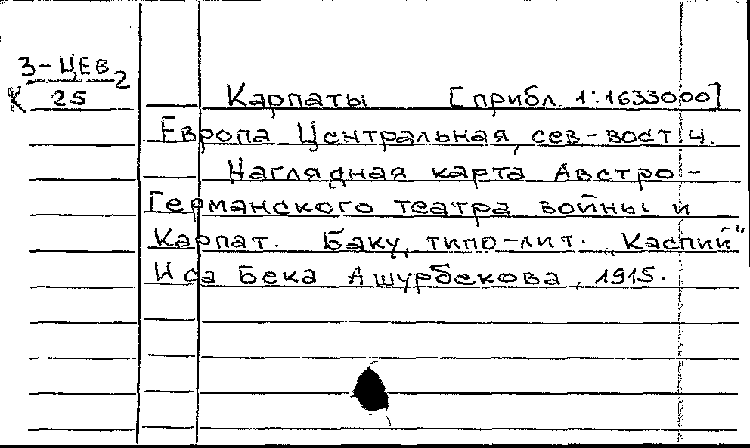 З-ЦЕВ 2
К 25
Карпаты [прибл. 1:1633000]
Европа Центральная, сев-вост ч.
Наглядная карта Австро-
Германского театра войны и
Карпат. Баку, типо-лит. „Каспий"
Иса Бека Ашурбекова, 1915.